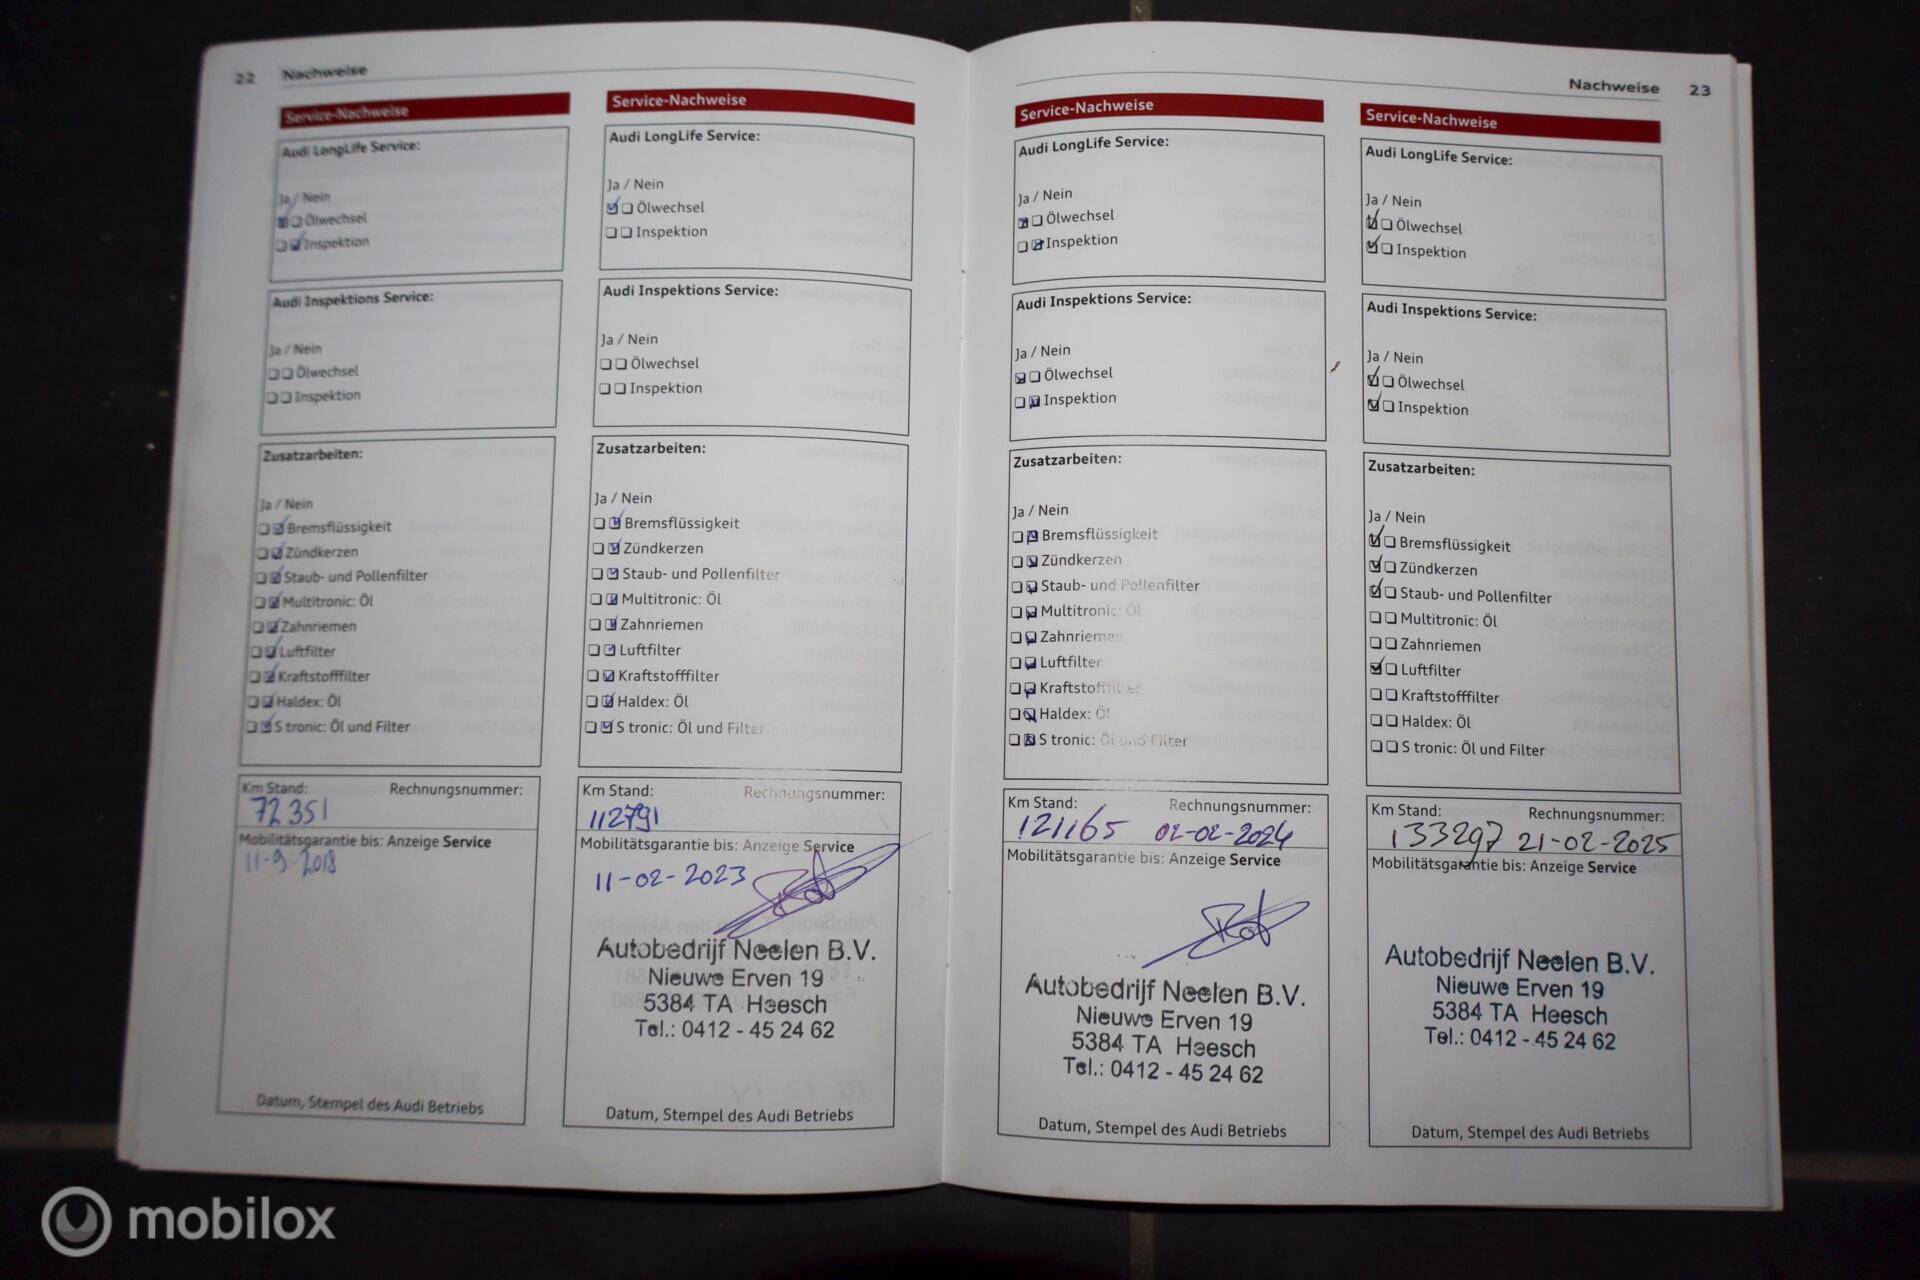 22 Nachweise
Service-Nachweise
Audi LongLife Service:
Ja / Nein
Ölwechsel
Inspektion
Audi Inspektions Service:
Ja / Nein
Ölwechsel
Inspektion
Zusatzarbeiten:
Ja / Nein
Bremsflüssigkeit
Zündkerzen
Staub- und Pollenfilter
Multitronic: Öl
Zahnriemen
Luftfilter
Kraftstofffilter
Haldex: Öl
S tronic: Öl und Filter
Km Stand: Rechnungsnummer:
72351
Mobilitätsgarantie bis: Anzeige Service
11-9-2018
Datum, Stempel des Audi Betriebs
Service-Nachweise
Audi LongLife Service:
Ja / Nein
Ölwechsel
Inspektion
Audi Inspektions Service:
Ja / Nein
Ölwechsel
Inspektion
Zusatzarbeiten:
Ja / Nein
Bremsflüssigkeit
Zündkerzen
Staub- und Pollenfilter
Multitronic: Öl
Zahnriemen
Luftfilter
Kraftstofffilter
Haldex: Öl
S tronic: Öl und Filter
Km Stand: Rechnungsnummer:
112791
Mobilitätsgarantie bis: Anzeige Service
11-02-2023
Autobedrijf Neelen B.V.
Nieuwe Erven 19
5384 TA Heesch
Tel.: 0412 - 45 24 62
Datum, Stempel des Audi Betriebs
Nachweise 23
Service-Nachweise
Audi LongLife Service:
Ja / Nein
Ölwechsel
Inspektion
Audi Inspektions Service:
Ja / Nein
Ölwechsel
Inspektion
Zusatzarbeiten:
Ja / Nein
Bremsflüssigkeit
Zündkerzen
Staub- und Pollenfilter
Multitronic: Öl
Zahnriemen
Luftfilter
Kraftstofffilter
Haldex: Öl
S tronic: Öl und Filter
Km Stand: Rechnungsnummer:
121165 02-02-2024
Mobilitätsgarantie bis: Anzeige Service
Autobedrijf Neelen B.V.
Nieuwe Erven 19
5384 TA Heesch
Tel.: 0412 - 45 24 62
Datum, Stempel des Audi Betriebs
Service-Nachweise
Audi LongLife Service:
Ja / Nein
Ölwechsel
Inspektion
Audi Inspektions Service:
Ja / Nein
Ölwechsel
Inspektion
Zusatzarbeiten:
Ja / Nein
Bremsflüssigkeit
Zündkerzen
Staub- und Pollenfilter
Multitronic: Öl
Zahnriemen
Luftfilter
Kraftstofffilter
Haldex: Öl
S tronic: Öl und Filter
Km Stand: Rechnungsnummer:
133297 21-02-2025
Mobilitätsgarantie bis: Anzeige Service
Autobedrijf Neelen B.V.
Nieuwe Erven 19
5384 TA Heesch
Tel.: 0412 - 45 24 62
Datum, Stempel des Audi Betriebs
mobilox